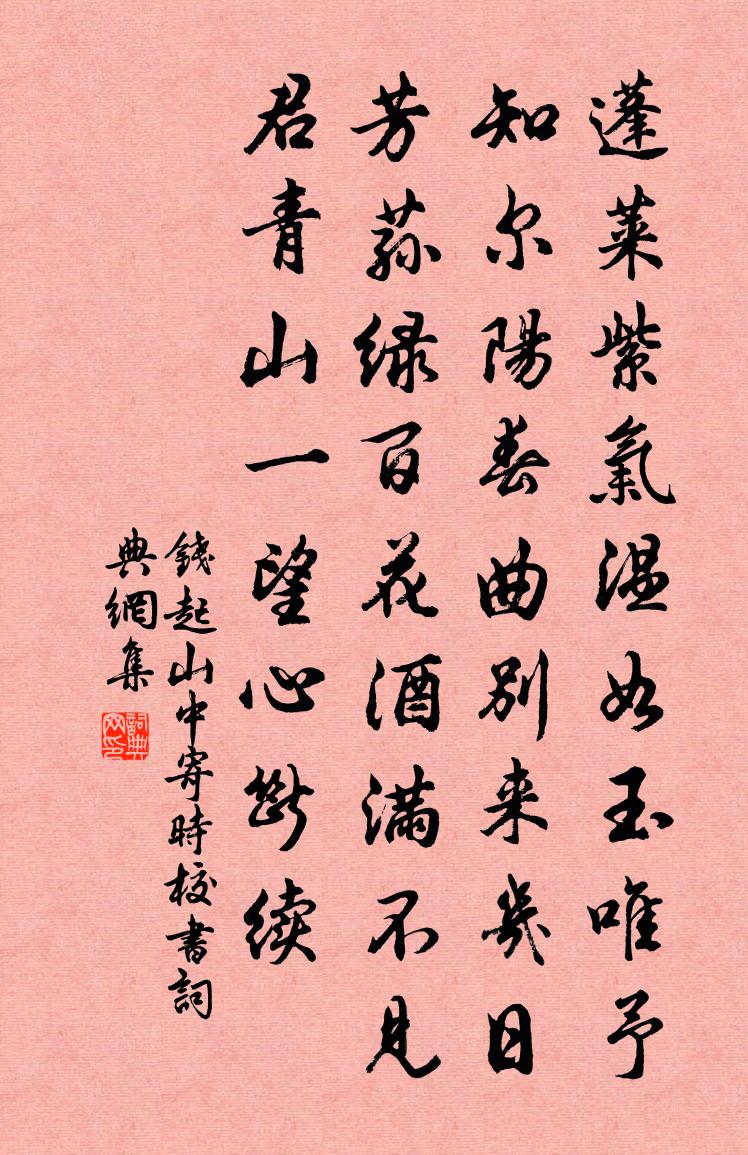 蓬莱紫氣温如玉唯予
知尔陽春曲别来幾日
芳荪绿百花酒满不見
君青山一望心斷续
錢起山中寄時校書詞
典網集
詞典網印